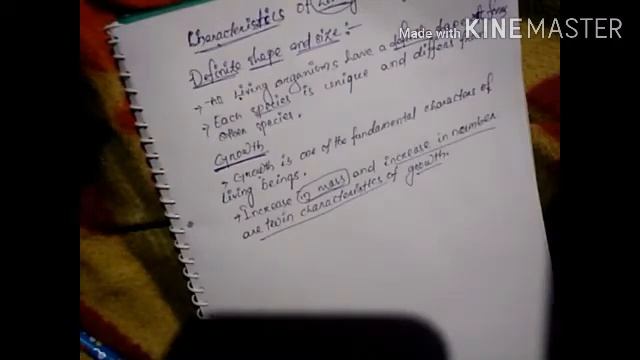 Characteristics of
Made with KINEMASTER
Definite shape and size :-
→ All living organisms have a definite
→ Each species is unique and differs
other species.
Growth
→ Growth is one of the fundamental characters of
living beings.
→ Increase in mass and increase in number
are twin characteristics of growth.